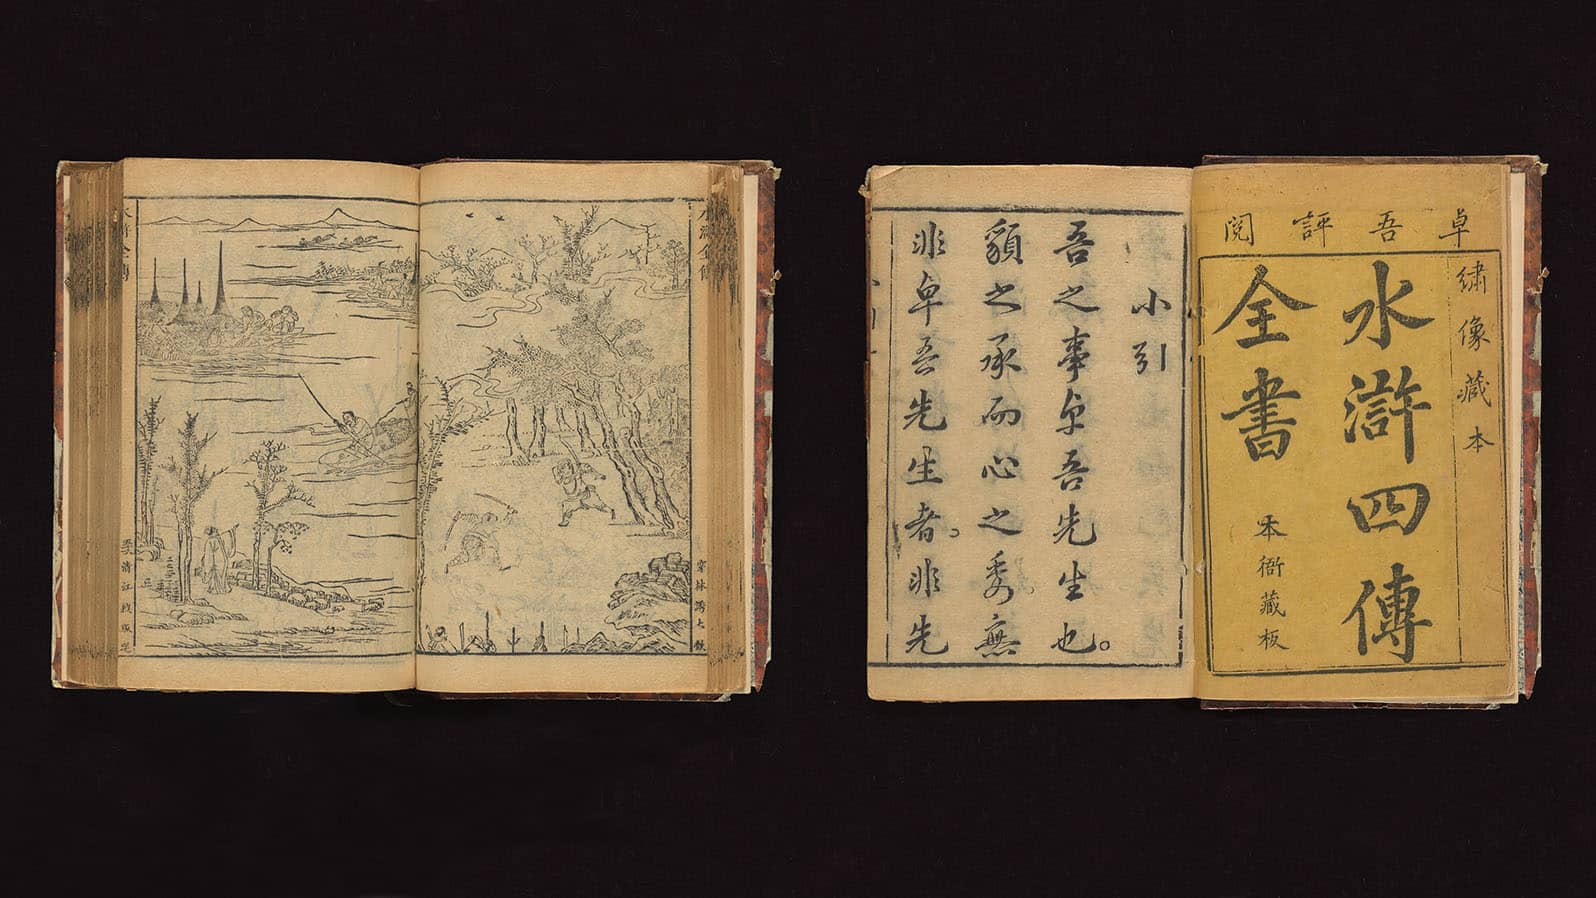 卓吾評閱
繡像藏本
水滸四傳
全書
本衙藏板
小引
吾之事卓吾先生也。
䫉之承而心之委無
非卓吾先生者。非先
水滸全傳
水滸全傳